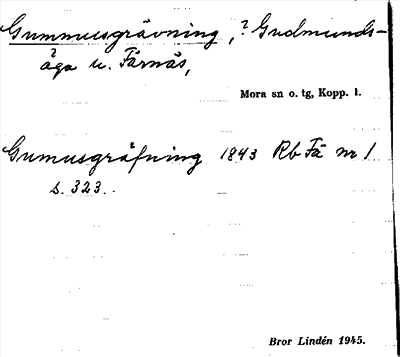 Gummusgrävning, ? Gudmunds-
åga u. Färnäs,
Mora sn o. tg, Kopp. l.
Gumusgräfning 1843 Rb Fä nr 1
s. 323.
Bror Lindén 1945.